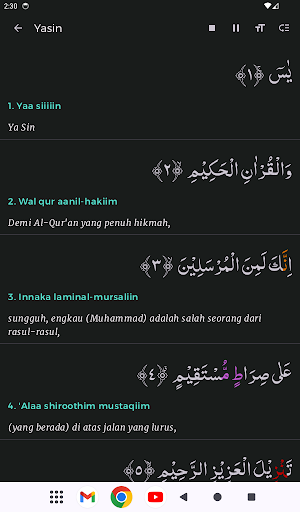 2:30
Yasin
يٰسۤ ﴿١﴾
1. Yaa siiiiin
Ya Sin
وَالْقُرْاٰنِ الْحَكِيْمِ ﴿٢﴾
2. Wal qur aanil-hakiim
Demi Al-Qur'an yang penuh hikmah,
اِنَّكَ لَمِنَ الْمُرْسَلِيْنَ ﴿٣﴾
3. Innaka laminal-mursaliin
sungguh, engkau (Muhammad) adalah salah seorang dari
rasul-rasul,
عَلٰى صِرَاطٍ مُّسْتَقِيْمٍ ﴿٤﴾
4. 'Alaa shiroothim mustaqiim
(yang berada) di atas jalan yang lurus,
تَنْزِيْلَ الْعَزِيْزِ الرَّحِيْمِ ﴿٥﴾